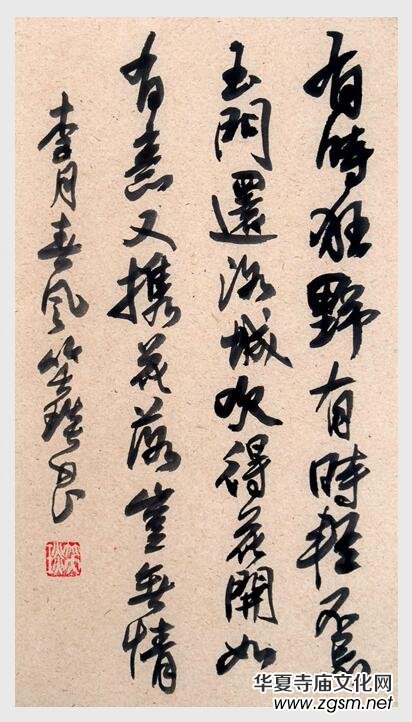 有時狂野有時輕不忘
玉門還洛城吹得花開如
有意又携花落豈無情
李月春風
华夏寺庙文化网
www.zgsm.net